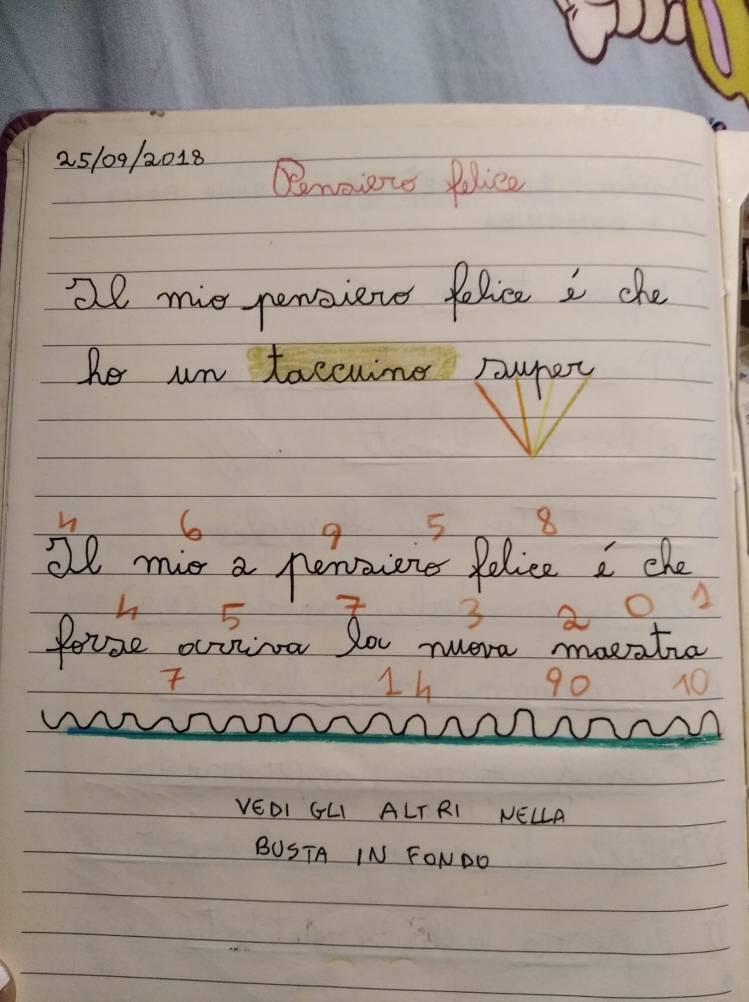 25/09/2018
Pensiero felice
Il mio pensiero felice é che
ho un taccuino super
4 6 9 5 8
Il mio 2 pensiero felice é che
4 5 7 3 2 0 1
forse arriva la nuova maestra
7 14 90 10
VEDI GLI ALTRI NELLA
BUSTA IN FONDO